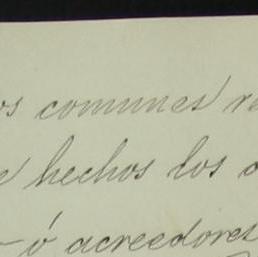 os comunes re
e hechos los
- ó acreedores